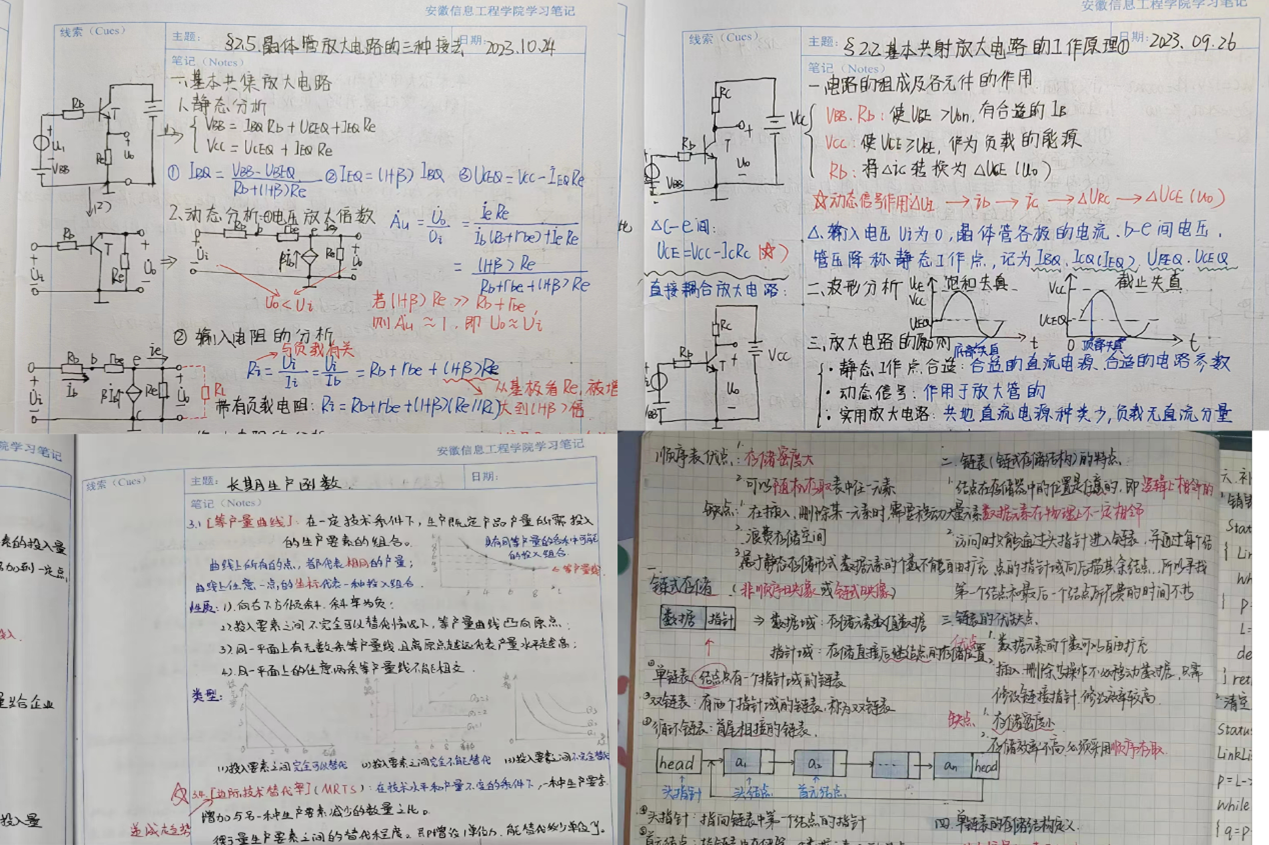 安徽信息工程学院学习笔记
线索（Cues）
主题：
§2.5.晶体管放大电路的三种接法
日期：
2023.10.24
笔记（Notes）
一.基本共集放大电路
1.静态分析
VBB = IBQ Rb + UBEQ + IEQ Re
VCC = UCEQ + IEQ Re
① IBQ = VBB-UBEQ / Rb+(1+β)Re ② IEQ = (1+β) IBQ ③ UCEQ = VCC - IEQ Re
2.动态分析 ①电压放大倍数
Ȧu = U̇o / U̇i = İe Re / İb(Rb+rbe)+İe Re
= (1+β)Re / Rb+rbe+(1+β)Re
Uo < Ui
若(1+β)Re >> Rb+rbe
则 Ȧu ≈ 1, 即 Uo ≈ Ui
② 输入电阻的分析
与负载有关
Ri = Ui / Ii = Ui / Ib = Rb + rbe + (1+β)Re
从基极看Re,被增
大到(1+β)倍
带有负载电阻: Ri = Rb+rbe+(1+β)(Re//RL)
安徽信息工程学院学习笔记
线索（Cues）
主题：
§2.2.基本共射放大电路的工作原理①
日期：
2023.09.26
笔记（Notes）
一.电路的组成及各元件的作用
VBB.Rb: 使UBE >Uon, 有合适的IB
VCC: 使UCE≥UBE, 作为负载的能源
Rb: 将△ic转换为△UCE(uo)
☆动态信号作用△UI → ib → ic → △URC → △UCE(uo)
△C-e间:
UCE=VCC-ICRC (☆)
△.输入电压Ui为0,晶体管各极的电流.b-e间电压.
管压降称静态工作点,记为IBQ、ICQ(IEQ)、UBEQ、UCEQ
直接耦合放大电路:
二.波形分析
饱和失真
截止失真
底部失真
顶部失真
三.放大电路的原则
·静态工作点合适:合适的直流电源、合适的电路参数
·动态信号:作用于放大管的
·实用放大电路:共地直流电源种类少,负载无直流分量
安徽信息工程学院学习笔记
线索（Cues）
主题：
长期生产函数
日期：
笔记（Notes）
3.1[等产量曲线]: 在一定技术条件下,生产既定产品产量的所需投入
的生产要素的组合。
曲线上所有的点,都代表相同的产量;
曲线上任意一点的坐标代表一种投入组合.
具有同等产量的各种可能
的投入组合
等产量线
性质: 1).向右下方倾斜.斜率为负;
2)投入要素之间不完全可以替代情况下,等产量曲线凸向原点;
3).同一平面上有无数条等产量线且离原点越远代表产量水平越高;
4).同一平面上的任意两条等产量线不能相交.
类型:
(1)投入要素之间完全可以替代
(2)投入要素之间完全不能替代
(3)投入要素之间不完全替代
[边际技术替代率](MRTS): 在技术水平和产量不变的条件下,一种生产要素
增加与另一种生产要素减少的数量之比。
递减趋势
1.顺序表优点: 1.存储密度大
2.可以随机存取表中任一元素
缺点: 1.在插入,删除某一元素时,需要移动大量元素
2.浪费存储空间
3.属于静态存储形式,数据元素的个数不能自由扩充
链式存储 (非顺序映像或链式映像)
数据 指针 ⇒ 数据域: 存储元素数值数据
指针域: 存储直接后继结点的存储位置
单链表: 结点只有一个指针域的链表
双链表: 有两个指针域的链表,称为双链表
循环链表: 首尾相接的链表.
head a1 a2 …… an head
头指针 头结点 首元结点
头指针: 指向链表中第一个结点的指针
二.链表(链式存储结构)的特点
1.结点在存储器中的位置是任意的,即逻辑上相邻的
数据元素在物理上不一定相邻
2.访问时只能通过头指针进入链表,并通过每个结
点的指针域向后扫描其余结点,所以寻找
第一个结点和最后一个结点所花费的时间不同
三.链表的优缺点
优点: 1.数据元素的个数可以自由扩充
2.插入.删除等操作不必移动数据,只需
修改链接指针,修改效率较高
缺点: 1.存储密度小
2.存储效率不高,必须采用顺序存取
四.单链表的存储结构定义